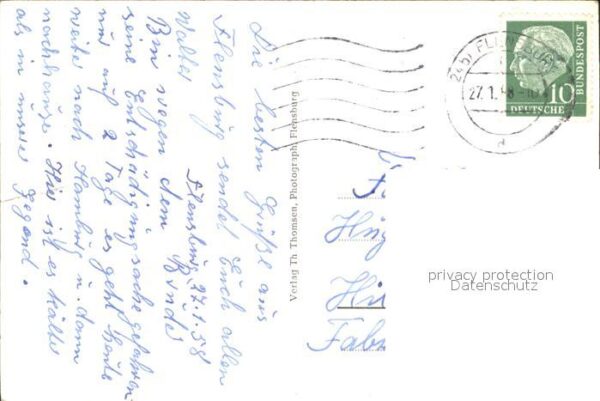 Die besten Grüße aus
Flensburg sendet Euch allen
Walter
Flensburg 27.1.58
Bin wegen dem Bindes
seine Entschädigungsache gefahren
nur auf 2 Tage es geht heute
weiter nach Hamburg u. dann
nachhause. Hier ist es kälter
als in unsere Gegend.
Verlag Th. Thomsen, Photograph, Flensburg
(24b) FLENSBURG
27.1.58
a
10
DEUTSCHE
BUNDESPOST
Fabr
privacy protection
Datenschutz